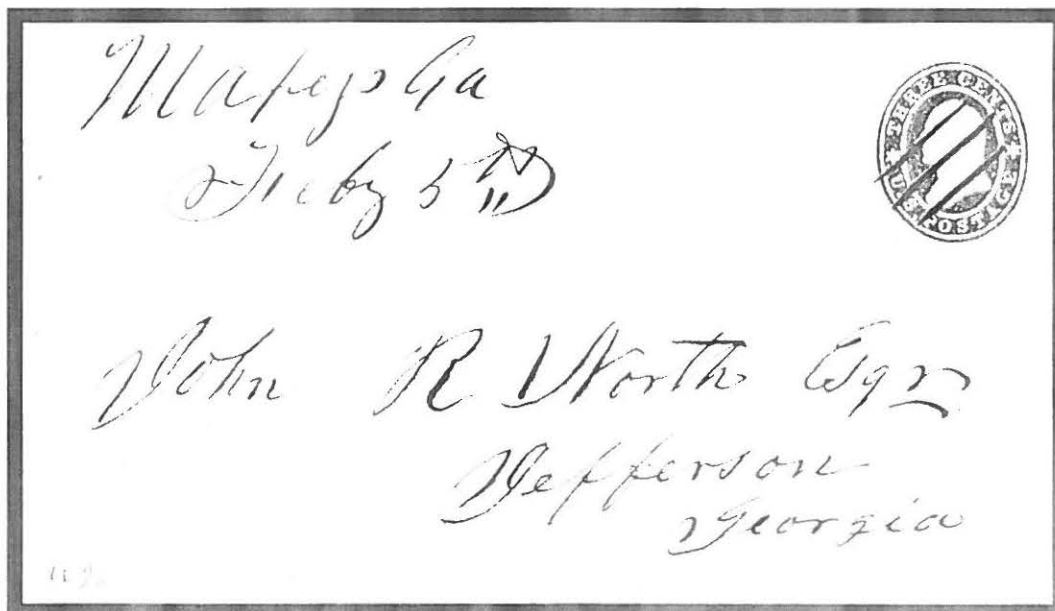 Maxeys Ga
Feby 5th
THREE CENTS
U.S. POSTAGE
John R North Esqr
Jefferson
Georgia